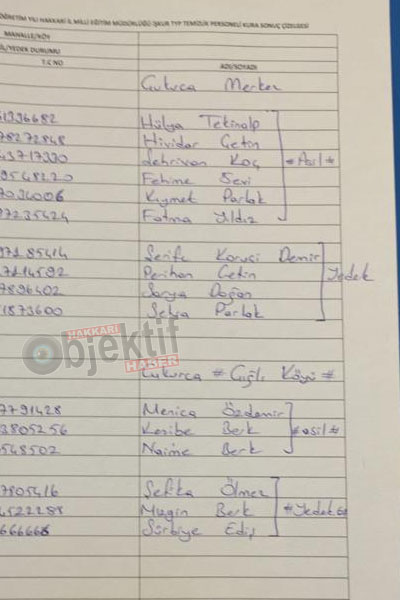 ÖĞRETİM YILI HAKKARİ İL MİLLİ EĞİTİM MÜDÜRLÜĞÜ İŞKUR TYP TEMİZLİK PERSONELİ KURA SONUÇ ÇİZELGESİ
MAHALLE/KÖY
ASİL/YEDEK DURUMU
T.C NO ADI/SOYADI
Çukurca Merkez
61396682 Hülya Tekinalp
78272848 Hividar Çetin
43717390 Zehrivan Koç *Asil*
9548220 Fehime Sevi
7034006 Kıymet Parlak
97235424 Fatma Yıldız
97185414 Şerife Korucu Demir
17114592 Perihan Çetin Yedek
7896402 Sarya Doğan
71873600 Selva Parlak
HAKKARİ
Objektif
HABER
Çukurca * Çığlı Köyü *
7791428 Menica Özdemir
3805256 Kesibe Berk *asil*
548502 Naime Berk
7805416 Şefika Ölmez
4522288 Mugin Berk *Yedek
666668 Sürbiye Ediş